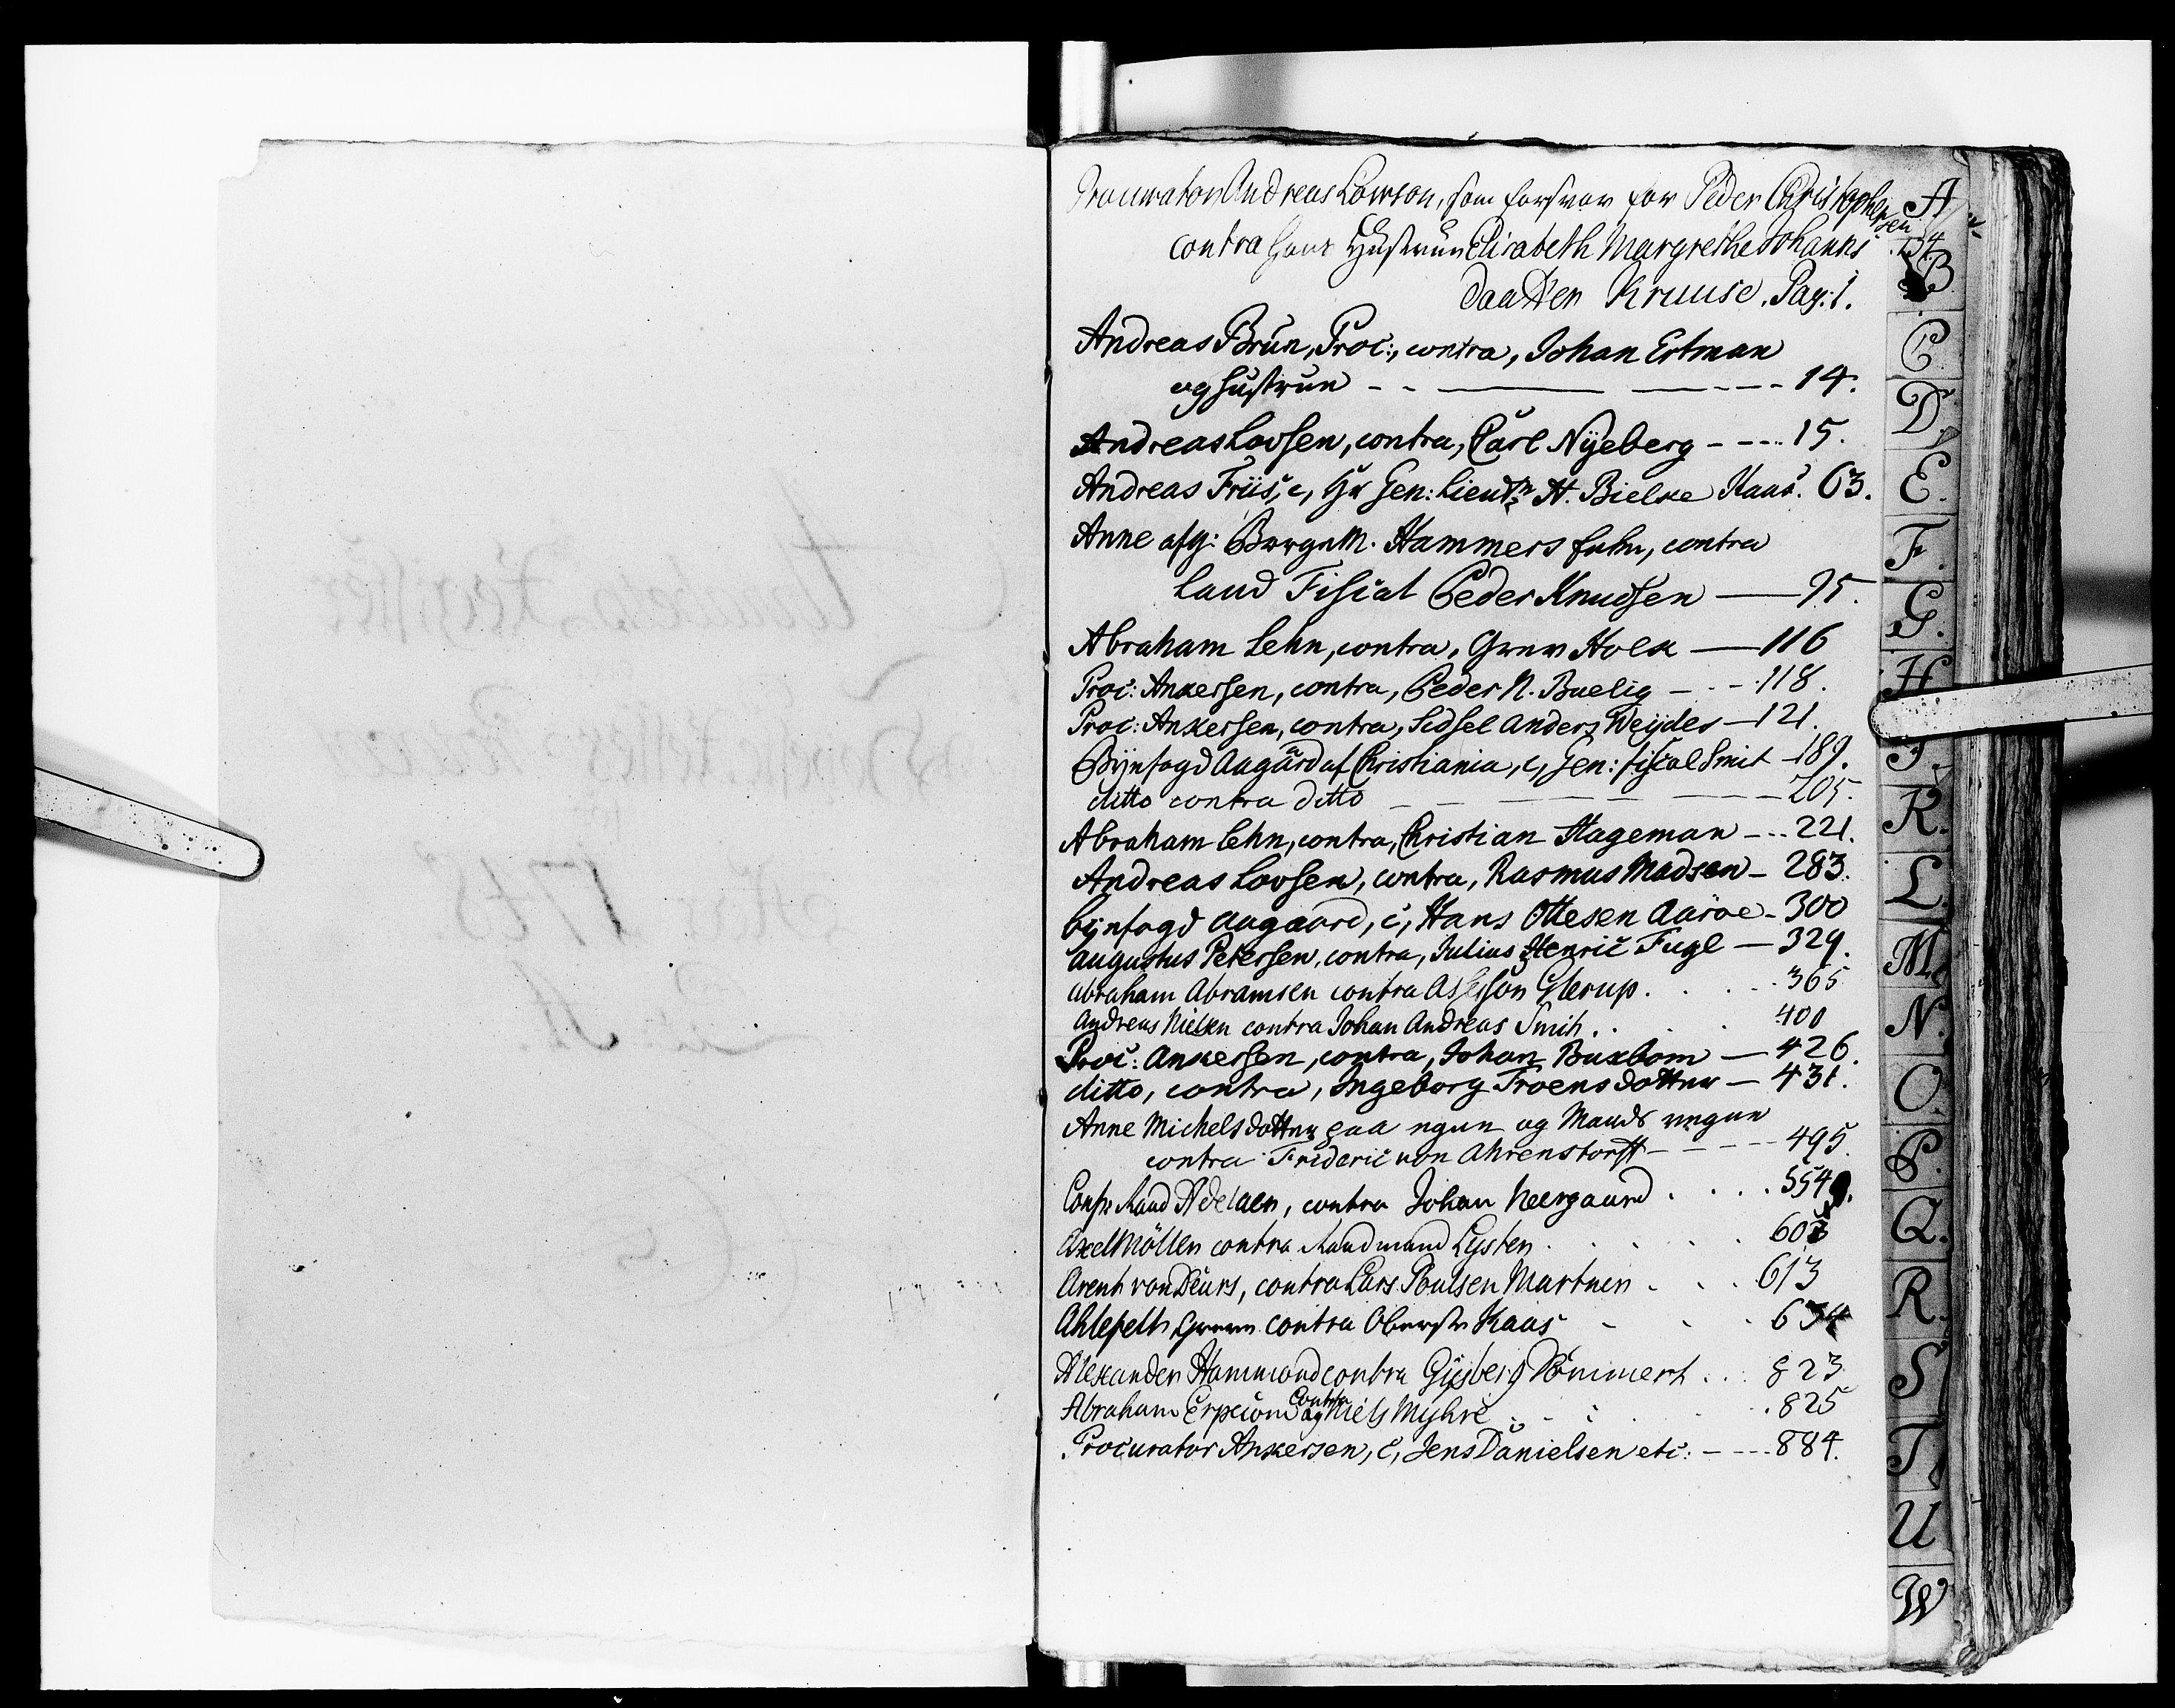 Procurator Andreas Lowson, som forsvar for Peder Christophersen
contra hans Hustrue Elisabeth Margrethe Johanns
daatter Kruuse. Pag: 1.
Andreas Brun, Proc:, contra, Johan Ertman
og hustrue - - - 14.
Andreas Lovsen, contra, Carl Nÿeberg - - - 15.
Andreas Friis, c, Hr Gen: Lieutn H. Bielke Kaas. 63.
Anne afg: Borgem. Hammers , contra
Land Fiscal Peder Knudsen — 95.
Abraham Lehn, contra, Grev Holck — 116
Proc: Ankersen, contra, Peder N. Buelig - - - 118.
Proc: Ankersen, contra, Sidsel Anders Weÿdes — 121.
Bÿefogd Aagaard af Christiania, c, Gen: fiscal Smit - 189.
ditto contra ditto — 205.
Abraham Lehn, contra, Christian Hageman - - - 221.
Andreas Lovsen, contra, Rasmus Madsen - 283.
Bÿefogd Aagaard, c, Hans Ottesen Aaröe - 300
Augustus Petersen, contra, Julius Henric Fugl — 329.
Abraham Abramsen contra Assessor Glerup. . . . 365
Andreas Nielsen contra Johan Andreas Smith . . . 400
Proc: Ankersen, contra, Johan Buxbom — 426.
ditto, contra, Ingeborg Troensdotter — 431.
Anne Michelsdotter paa egne og Mands vegne
contra Frideric von Ahrenstorff - - - 495.
Confr: Raad Adelaer, contra Johan Neergaard . . . . 554.
Axel Möller contra Raadmand Lysten . . . . 603
Arent von Deurs, contra Lars Poulsen Martner . . . 613
Ahlefelth Greve contra Oberste Kaas - . . 634
Alexander Hammond contra Gijsberg Dommert . . . 823
Abraham Contra Niels Myhre . . . 825
Procurator Ankersen, c, Jens Danielsen etc: - - - 884.
A
B
C
D.
E.
F.
G.
H
I.
K.
L.
M.
N.
O.
P.
Q.
R.
S
T.
U
W